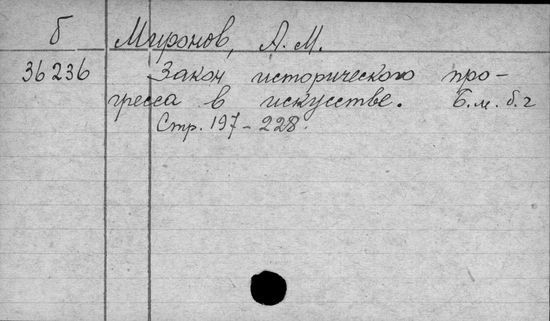 б Миронов, А. М.
36236 Закон исторического про-
гресса в искусстве. Б.м. б.г
Стр. 197-228.